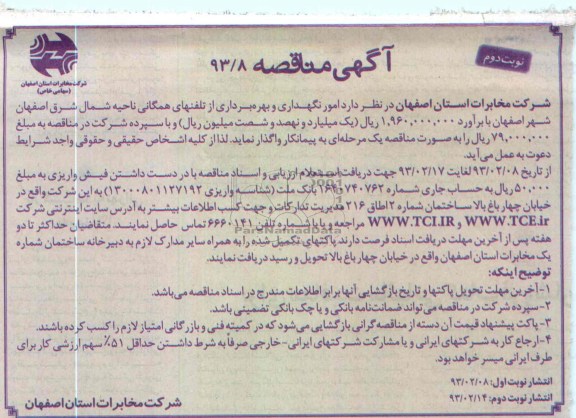 نوبت دوم
آگهی مناقصه ۹۳/۸
شرکت مخابرات استان اصفهان
(سهامی خاص)
شرکت مخابرات استان اصفهان در نظر دارد امور نگهداری و بهره‌برداری از تلفنهای همگانی ناحیه شمال شرق اصفهان
شهر اصفهان با برآورد ۱,۹۶۰,۰۰۰,۰۰۰ ریال (یک میلیارد و نهصد و شصت میلیون ریال) و با سپرده شرکت در مناقصه به مبلغ
۷۹,۰۰۰,۰۰۰ ریال را به صورت مناقصه یک مرحله‌ای به پیمانکار واگذار نماید. لذا از کلیه اشخاص حقیقی و حقوقی واجد شرایط
دعوت به عمل می‌آید.
از تاریخ ۹۳/۰۲/۰۸ لغایت ۹۳/۰۲/۱۷ جهت دریافت استعلام ارزیابی و اسناد مناقصه با در دست داشتن فیش واریزی به مبلغ
۵۰,۰۰۰ ریال به حساب جاری شماره بانک ملت (شناسه واریزی ۱۳۰۰۰۸۰۱۱۲۷۱۹۲) به این شرکت واقع در
خیابان چهار باغ بالا ساختمان شماره ۲ اطاق ۲۱۶ مدیریت تدارکات و جهت کسب اطلاعات بیشتر به آدرس سایت اینترنتی شرکت
WWW.TCE.ir و WWW.TCI.IR مراجعه و یا با شماره تلفن ۶۶۶۰۱۴۱ تماس حاصل نمایند. متقاضیان حداکثر تا دو
هفته پس از آخرین مهلت دریافت اسناد فرصت دارند پاکتهای تکمیل شده را به همراه سایر مدارک لازم به دبیرخانه ساختمان شماره
یک مخابرات استان اصفهان واقع در خیابان چهار باغ بالا تحویل و رسید دریافت نمایند.
توضیح اینکه:
۱-آخرین مهلت تحویل پاکتها و تاریخ بازگشایی آنها برابر اطلاعات مندرج در اسناد مناقصه می‌باشد.
۲-سپرده شرکت در مناقصه می‌تواند ضمانت‌نامه بانکی و یا چک بانکی تضمینی باشد.
۳- پاکت پیشنهاد قیمت آن دسته از مناقصه‌گرانی بازگشایی می‌شود که در کمیته فنی و بازرگانی امتیاز لازم را کسب کرده باشند.
۴-ارجاع کار به شرکتهای ایرانی و یا مشارکت شرکتهای ایرانی-خارجی صرفاً به شرط داشتن حداقل ۵۱٪ سهم ارزشی کار برای
طرف ایرانی میسر خواهد بود.
انتشار نوبت اول: ۹۳/۰۲/۰۸
انتشار نوبت دوم: ۹۳/۰۲/۱۴
شرکت مخابرات استان اصفهان